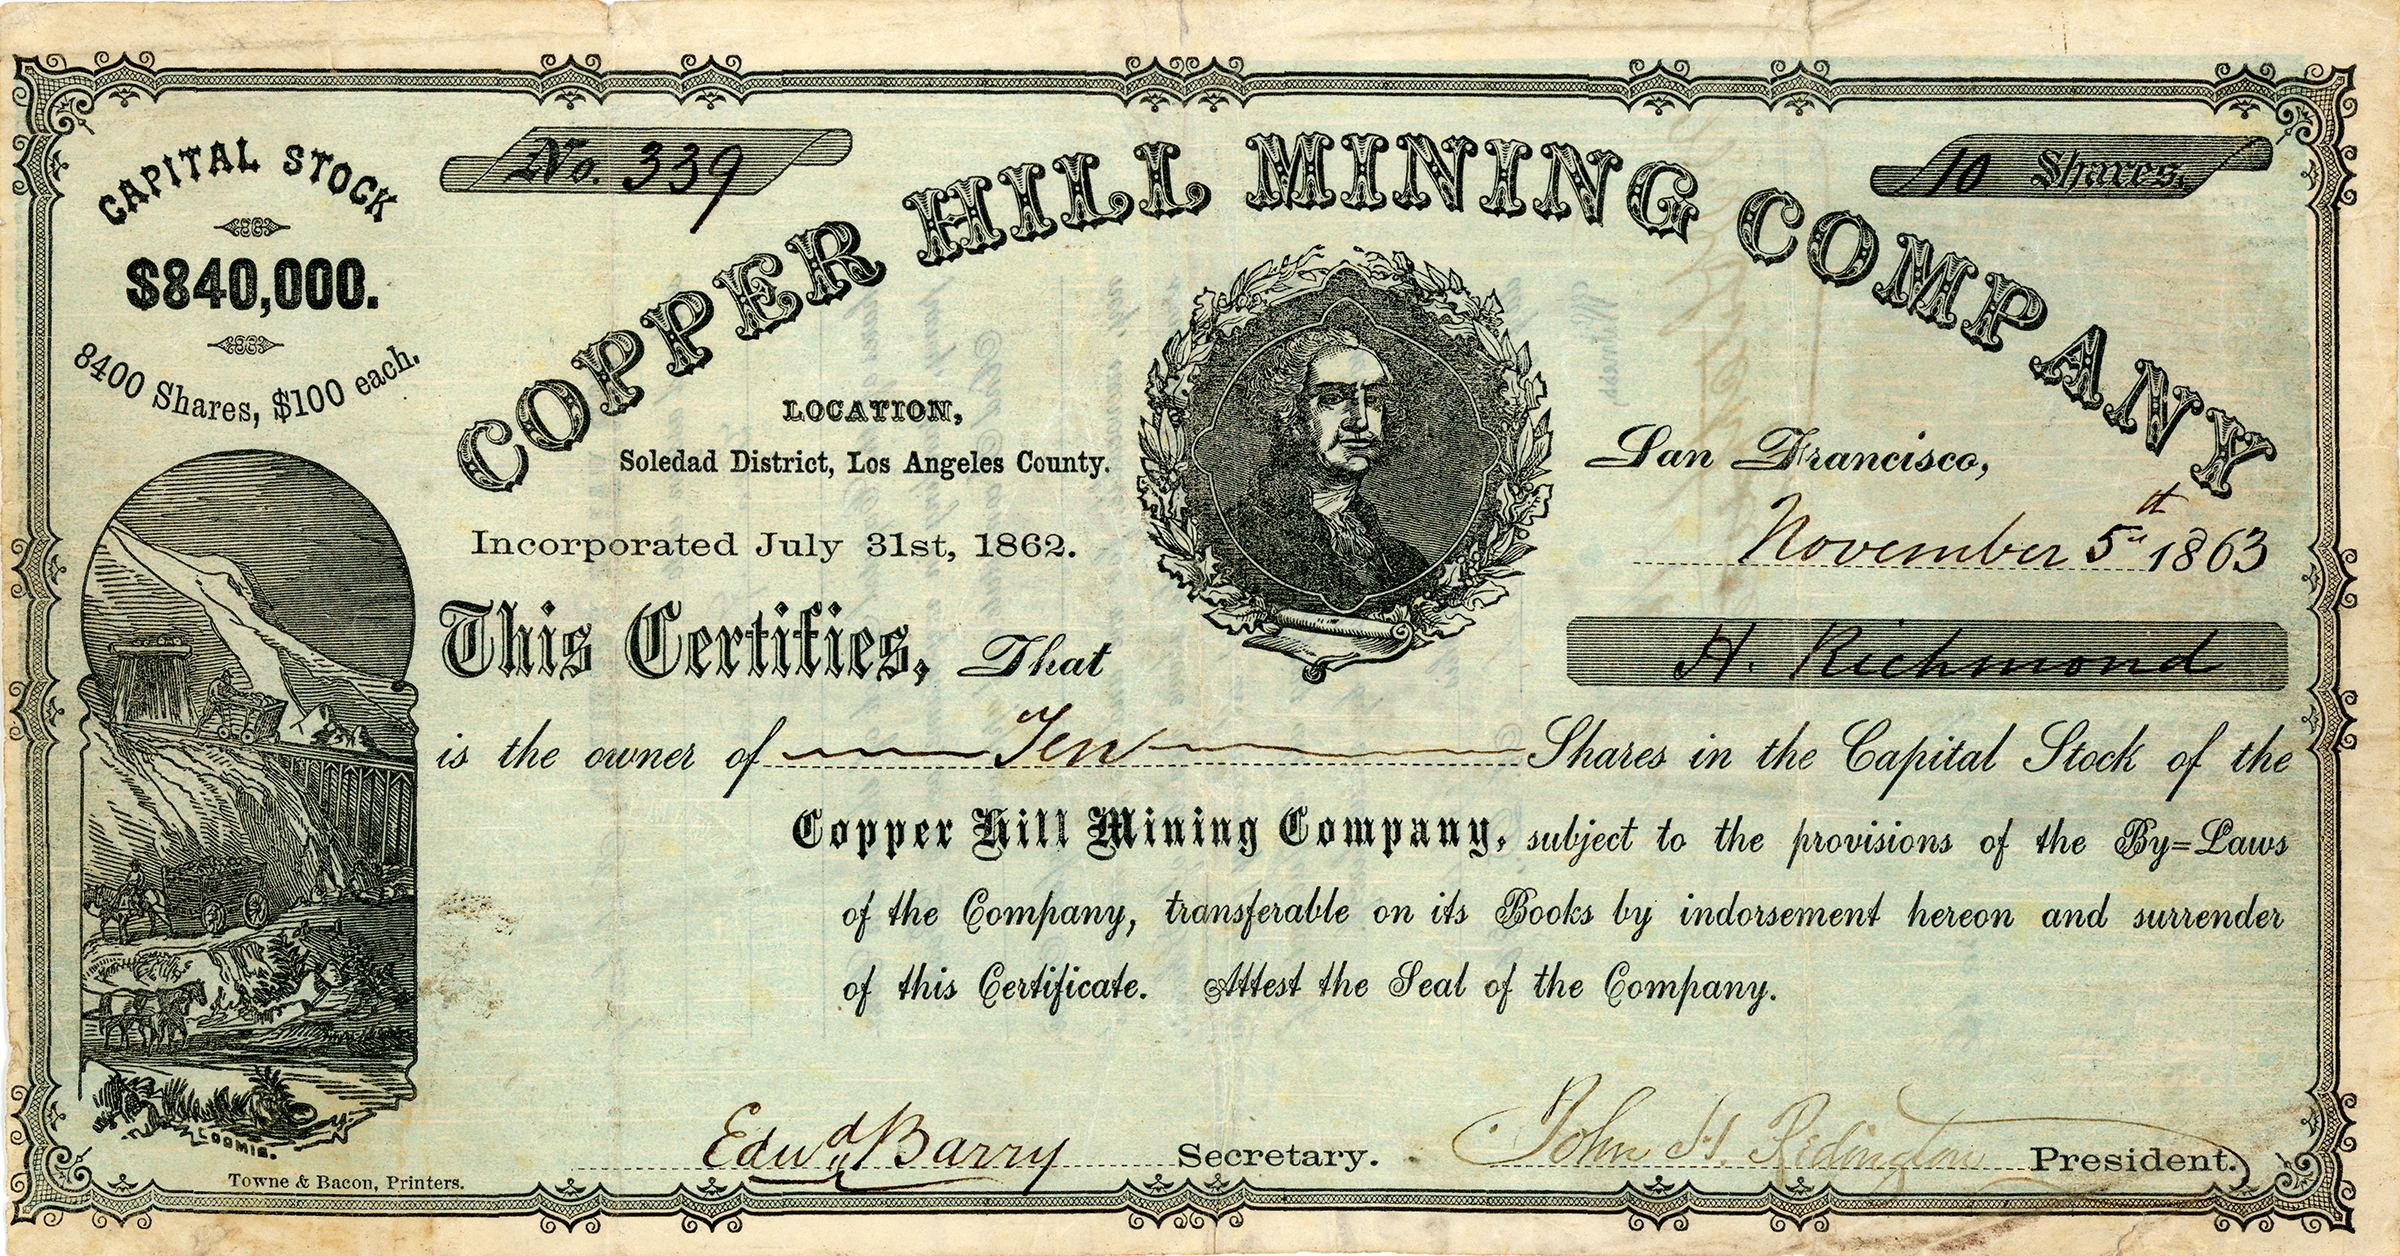 CAPITAL STOCK
$840,000.
8400 Shares, $100 each.
No. 339
10 Shares.
COPPER HILL MINING COMPANY
LOCATION,
Soledad District, Los Angeles County.
Incorporated July 31st, 1862.
San Francisco,
November 5th 1863
This Certifies, That H. Richmond
is the owner of Ten Shares in the Capital Stock of the
Copper Hill Mining Company, subject to the provisions of the By=Laws
of the Company, transferable on its Books by indorsement hereon and surrender
of this Certificate. Attest the Seal of the Company.
Edwd Barry Secretary. John H. Redington President.
LOOMIS.
Towne & Bacon, Printers.